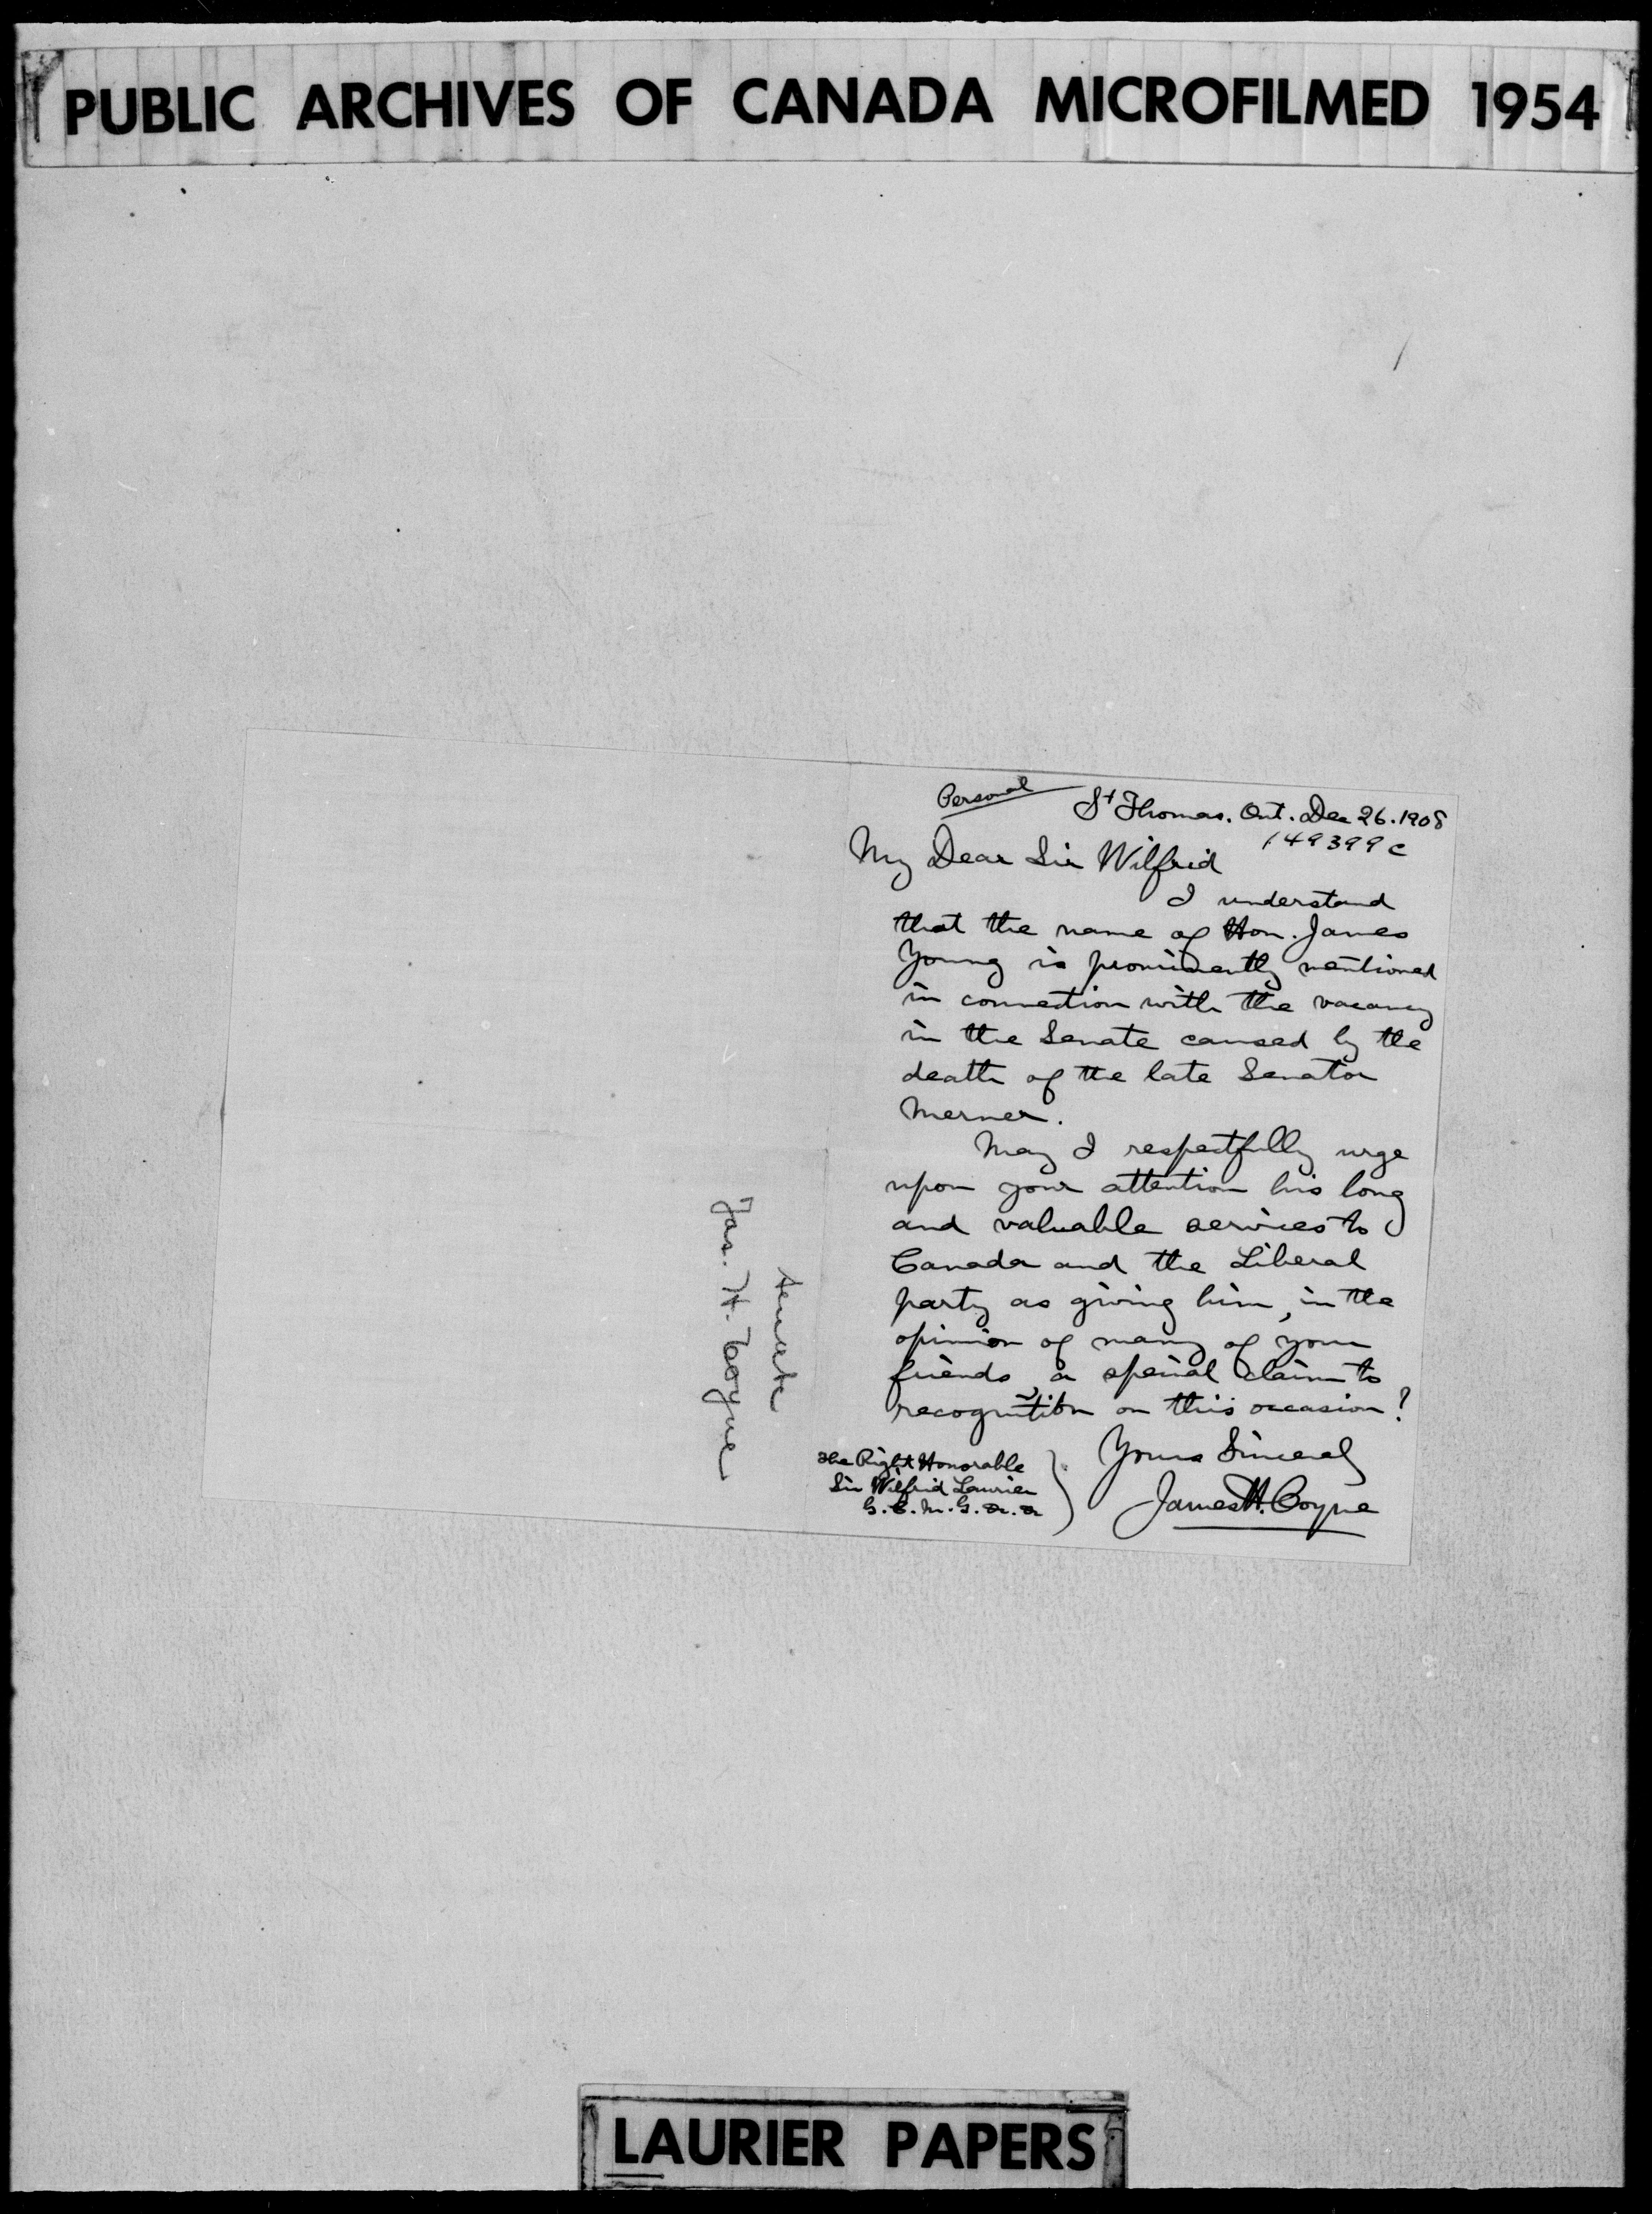 PUBLIC ARCHIVES OF CANADA MICROFILMED 1954
Personal
St Thomas. Ont. Dec 26. 1908
149399 c
My Dear Sir Wilfrid
I understand
that the name of Hon. James
Young is prominently mentioned
in connection with the vacancy
in the Senate caused by the
death of the late Senator
Merner.
May I respectfully urge
upon your attention his long
and valuable services to
Canada and the Liberal
party as giving him, in the
opinion of many of your
friends, a special claim to
recognition on this occasion?
Yours Sincerely
James H. Coyne
The Right Honorable
Sir Wilfrid Laurier
G.C.M.G. &c. &c
Senate
Jas. H. Coyne
LAURIER PAPERS